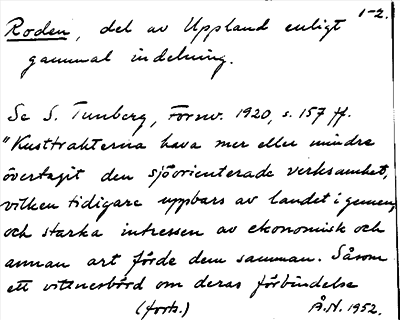 1-2.
Roden, del av Uppland enligt
gammal indelning.
Se S. Tunberg, Fornv. 1920, s. 157 ff.
"Kusttrakterna hava mer eller mindre
övertagit den sjöorienterade verksamhet,
vilken tidigare uppbars av landet i gemen,
och starka intressen av ekonomisk och
annan art förde dem samman. Såsom
ett vittnesbörd om deras förbindelse
(forts.) Å.N. 1952.